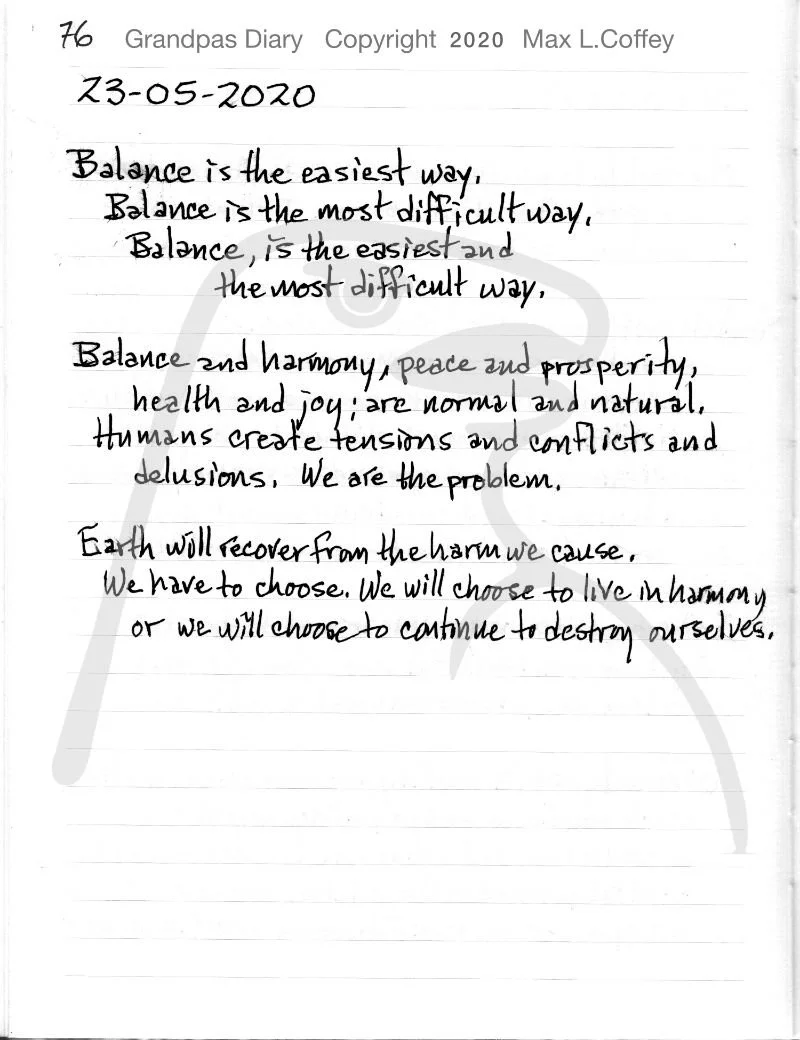 76 Grandpas Diary Copyright 2020 Max L.Coffey
23-05-2020
Balance is the easiest way.
Balance is the most difficult way.
Balance, is the easiest and
the most difficult way.
Balance and harmony, peace and prosperity,
health and joy; are normal and natural.
Humans create tensions and conflicts and
delusions. We are the problem.
Earth will recover from the harm we cause.
We have to choose. We will choose to live in harmony
or we will choose to continue to destroy ourselves.